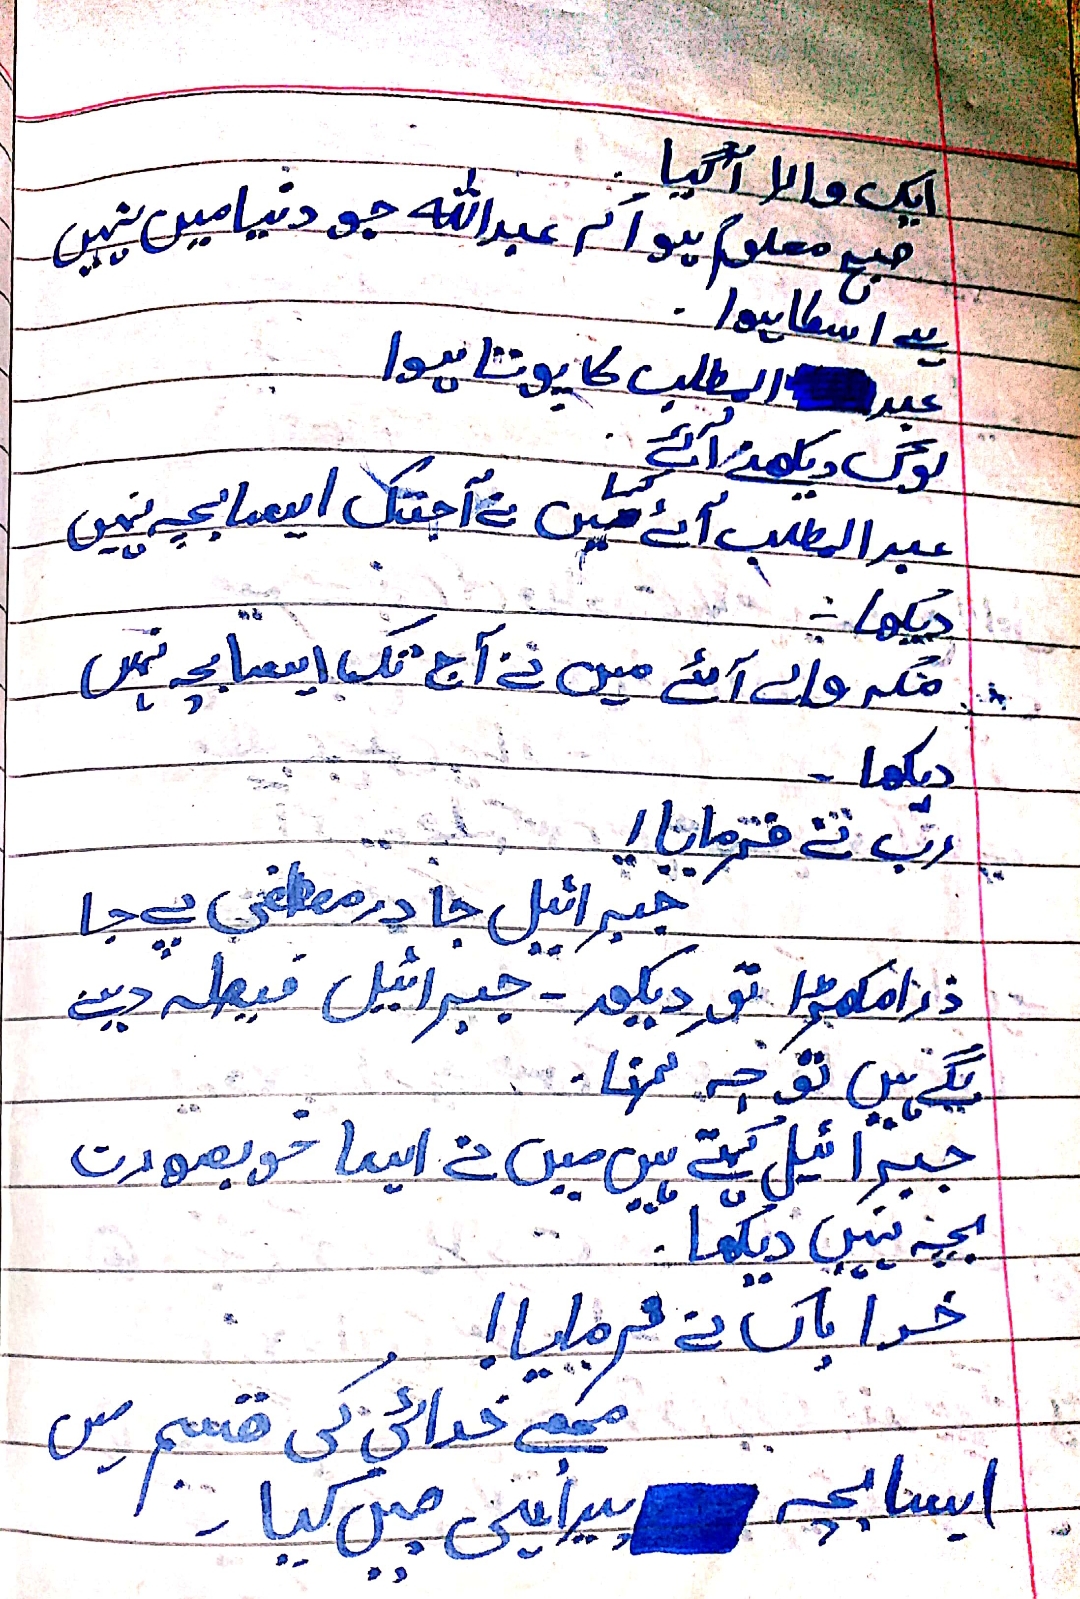 ایک والا آگیا
صبح معلوم ہوا کہ عبداللہ جو دنیا میں نہیں
ہے اسکا ہوا ۔
عبد المطلب کا پوتا ہوا
لوگ دیکھنے آئے
عبدالمطلب آئے کہا میں نے آجتک ایسا بچہ نہیں
دیکھا :-
مکہ والے آئے میں نے آج تک ایسا بچہ نہیں
دیکھا -
رب نے فرمایا!
جبرائیل جا در مصطفی پے جا
ذرا مکھڑا تو دیکھ - جبرائیل فیصلہ دینے
لگے ہیں توجہ کرنا ۔
جبرائیل کہتے ہیں میں نے ایسا خوبصورت
بچہ نہیں دیکھا ۔
خدا پاک نے فرمایا!
مجھے خدائی کی قسم میں
ایسا بچہ پیدا ہی نہیں کیا -